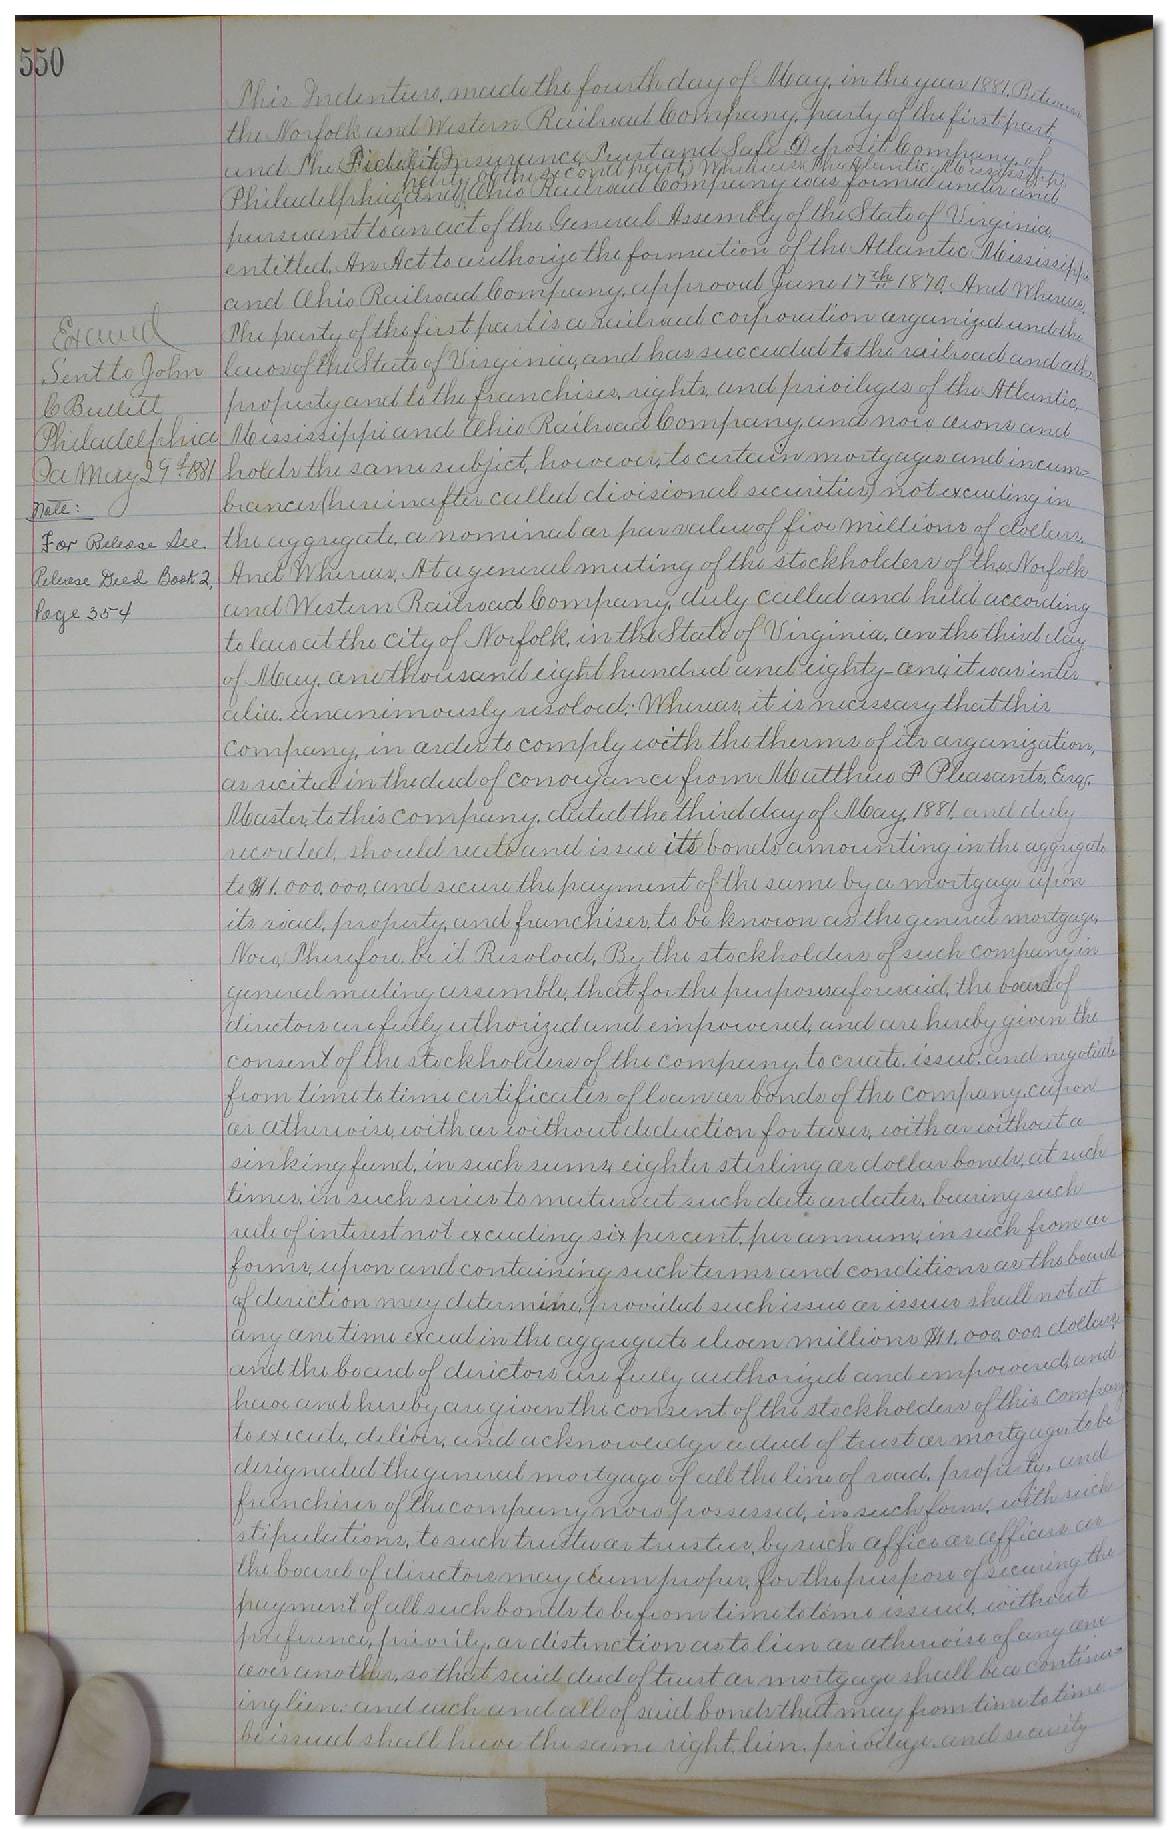 550
This Indenture, made the fourth day of May, in the year 1881, Between
the Norfolk and Western Railroad Company, party of the first part,
and The Fidelity Insurance, Trust and Safe Deposit Company, of
party of the second part, Whereas, The Atlantic, Mississippi
Philadelphia, and Ohio Railroad Company was formed under and
pursuant to an act of the General Assembly of the State of Virginia,
entitled, An Act to authorize the formation of the Atlantic Mississippi
and Ohio Railroad Company, approved June 17th 1870, And Whereas,
The party of the first part is a railroad corporation organized under the
laws of the State of Virginia, and has succeeded to the railroad and other
property and to the franchises, rights, and privileges of the Atlantic,
Mississippi and Ohio Railroad Company, and now owns and
holds the same subject, however, to certain mortgages and incum=
brances (hereinafter called divisional securities) not exceeding in
the aggregate, a nominal or par value of five millions of dollars.
And Whereas, At a general meeting of the stockholders of the Norfolk
and Western Railroad Company, duly called and held according
to law at the city of Norfolk, in the State of Virginia, on the third day
of May, one thousand eight hundred and eighty-one, it was inter
alia, unanimously resolved: Whereas, it is necessary that this
company, in order to comply with the therms of its organization,
as recited in the deed of conveyance from Matthew F Pleasants, Esq.
Master, to this company, dated the third day of May, 1881, and duly
recorded, should create and issue its bonds amounting in the aggregate
to $11.000,000, and secure the payment of the same by a mortgage upon
its road, property, and franchises, to be known as the general mortgage,
Now, Therefore, be it Resolved, By the stockholders of such company in
general meeting assemble, that for the purposes aforesaid, the board of
directors are fully uthorized and empowered, and are hereby given the
consent of the stockholders of the company, to create, issue, and negotiate
from time to time certificates of loan or bonds of the company, cupon
or otherwise, with or without deduction for taxes, with or without a
sinking fund, in such sums, eighter sterling or dollar bonds, at such
times, in such series to mature at such date or dates, bearing such
rate of interest not exceeding six per cent. per annum, in such from or
forms, upon and containing such terms and conditions as the board
of direction may determine, provided such issue or issues shall not at
any one time exceed in the aggregate eleven millions $11.000,000 dollars,
and the board of directors are fully authorized and empowered, and
have and hereby are given the consent of the stockholders of this company
to execute, deliver, and acknowledge a deed of trust or mortgage, to be
designated the general mortgage of all the line of road, property, and
franchises of the company now possessed, in such form, with such
stipulations, to such trustee or trustees, by such office or officers as
the board of directors may deem proper, for the purpose of securing the
payment of all such bonds to be from time to time issued, without
preference, priority, or distinction as to lien or otherwise of any one
over another, so that said deed of trust or mortgage shall be a continu=
ing lien: and each and all of said bonds that may from time to time
be issued shall have the same right, lien, privilege, and security
Examd
Sent to John
C Bullitt
Philadelphia
Pa May 29th 1881
Note:
For Release See
Release Deed Book 2,
Page 354